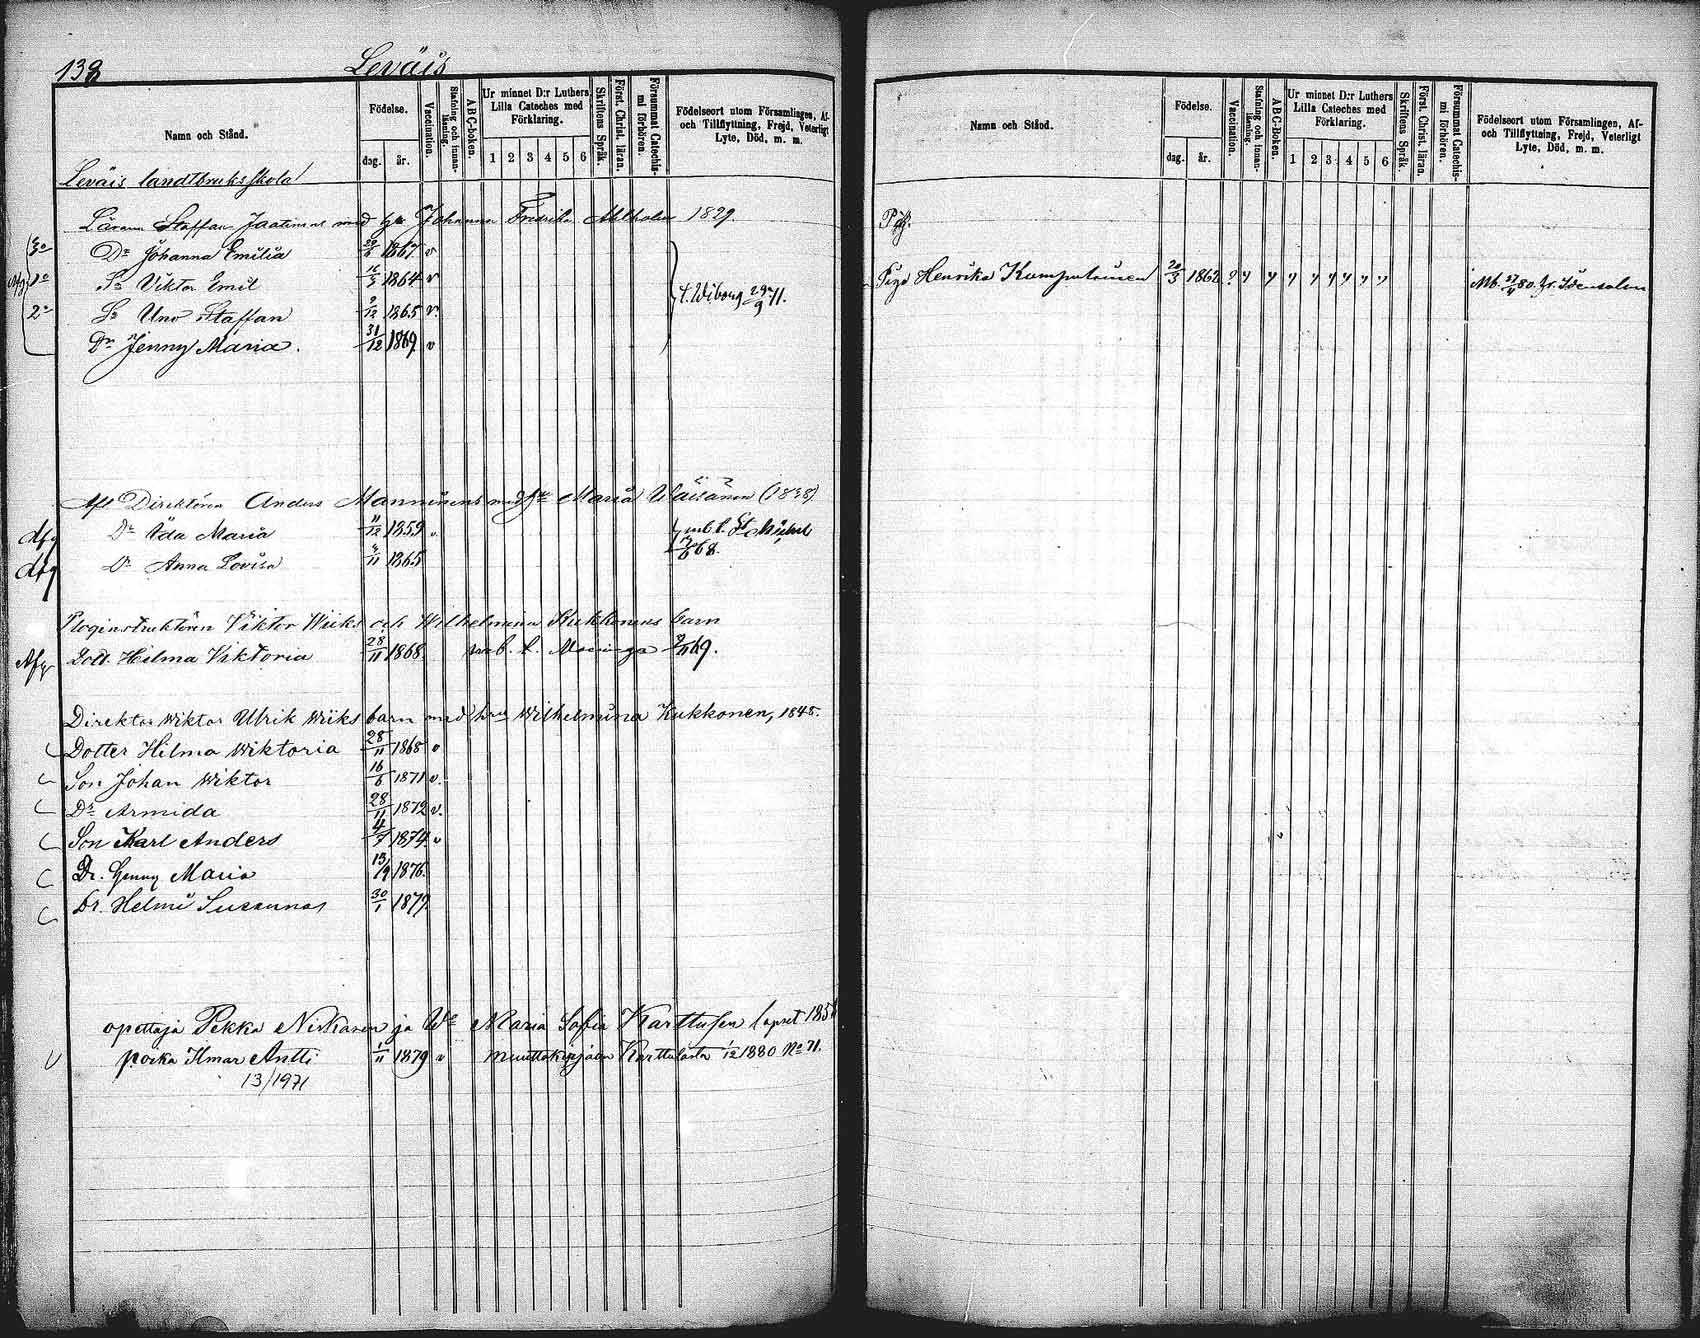 138 Leväis
Namn och Stånd.
Födelse.
dag. år.
Vaccination.
Stafning och innanläsning.
ABC-boken.
Ur minnet D:r Luthers Lilla Cateches med Förklaring.
1 2 3 4 5 6
Skriftens Språk.
Först. Christ. läran.
Försummat Catechismi förhören.
Födelseort utom Församlingen, Af- och Tillflyttning, Frejd, Veterligt Lyte, Död, m. m.
Leväis landtbruksskola
Läraren Staffan Jaatinens med Johanna Fredrika Ahlholm 1829.
Dr Johanna Emilia 1867 v
Afg 1o Sn Viktor Emil 1864 v
2o Sn Uno Staffan 9/12 1865 v. t. Wiborg 29/9 71.
Dr Jenny Maria. 31/12 1869 v
Aft Direktören Anders Manninens med hu Maria Wäisänen (1838)
afg Dr Ida Maria 11/12 1859 v. mb. t. St Michel
afg Dr Anna Lovisa 4/11 1865 68.
Ploginstruktören Viktor Wiiks och Wilhelmina Kukkonens barn
Afg Dott. Hilma Viktoria 28/11 1868. mb. t. 69.
Direktor Wiktor Ulrik Wiiks barn med hru Wilhelmina Kukkonen, 1845.
Dotter Hilma Wiktoria 28/11 1868 v
Son Johan Wiktor 16/6 1871 v.
Dr Armida 28/11 1872 v.
Son Karl Anders 4/7 1874 v
Dr. Jenny Maria 13/9 1876.
Dr. Helmi Susanna 30/1 1879.
opettaja Pekka Niskanen ja Wo Maria Sofia Karttusen lapset 1854
poika Ilmar Antti 1/11 1879 v muuttokirjalla Karttulasta 1/12 1880 No 71.
13/1971
Namn och Stånd.
Födelse.
dag. år.
Vaccination.
Stafning och innanläsning.
ABC-Boken.
Ur minnet D:r Luthers Lilla Cateches med Förklaring.
1 2 3 4 5 6
Skriftens Språk.
Först. Christ. läran.
Försummat Catechismi förhören.
Födelseort utom Församlingen, Af- och Tillflyttning, Frejd, Veterligt Lyte, Död, m. m.
Pig.
Piga Henrika Kumpulainen 20/3 1862 ? y y y y y y y Mb. 27/4 80. fr. Idensalmi